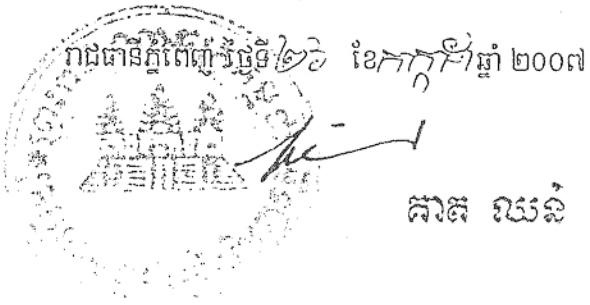 រាជធានីភ្នំពេញ ថ្ងៃទី ២៦ ខែ កក្កដា ឆ្នាំ ២០០៧
គាត ឈន់